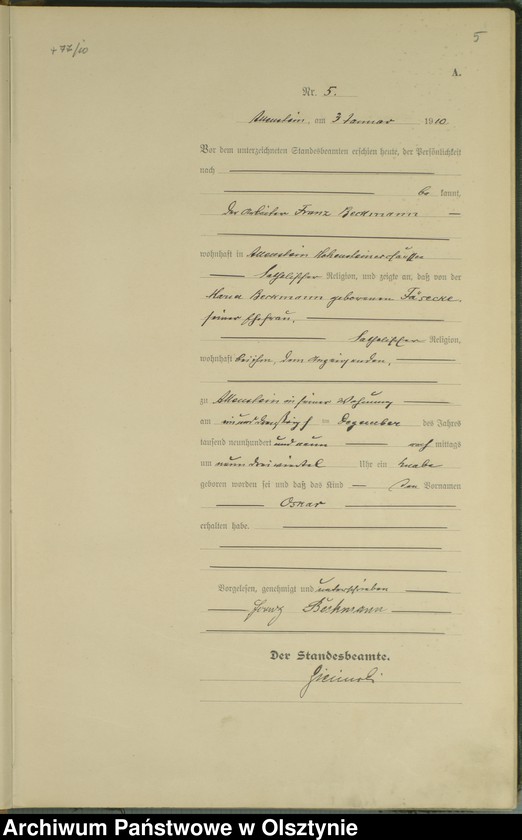 + 77/10
5
A.
Nr. 5.
Allenstein, am 3 Januar 1910
Vor dem unterzeichneten Standesbeamten erschien heute, der Persönlichkeit
nach
be kannt,
der Arbeiter Franz Beckmann
wohnhaft in Allenstein Hohensteinerchaussee
katholischer Religion, und zeigte an, daß von der
Maria Beckmann geborenen
seiner Ehefrau,
katholischer Religion,
wohnhaft bei ihm, dem Anzeigenden,
zu Allenstein in seiner Wohnung
am einunddreißigsten Dezember des Jahres
tausend neunhundert und neun nachmittags
um neun dreiviertel Uhr ein Knabe
geboren worden sei und daß das Kind den Vornamen
Oskar
erhalten habe.
Vorgelesen, genehmigt und unterschrieben
Franz Beckmann
Der Standesbeamte.
Archiwum Państwowe w Olsztynie